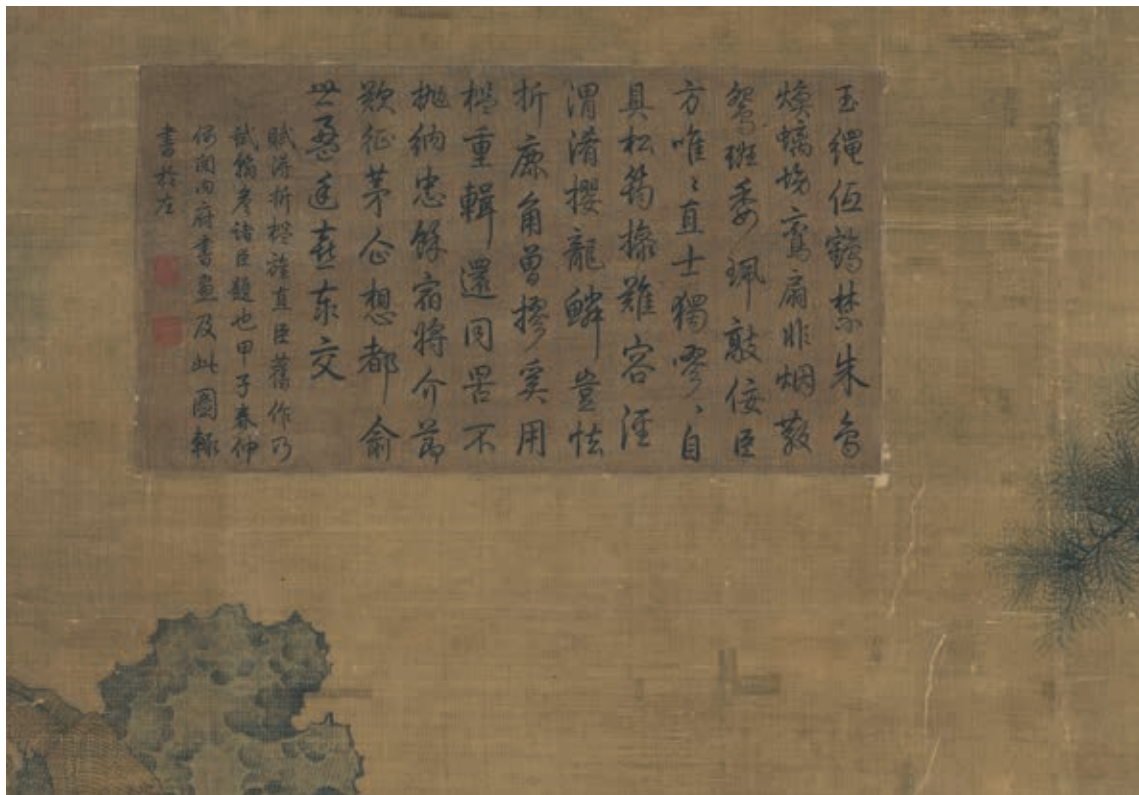 玉繩低鶴禁朱鳥
煥螭坳鸞扇非烟散
鴛班委珮敲佞臣
方唯〻直士獨嘐〻自
具松筠操難容涇
渭淆攖龍鱗豈怯
折鹿角曾摎奚用
檻重輯還同罟不
拋納忠餘宿將介節
歎征茅企想都俞
世盈廷喜泰交
賦得折檻旌直臣舊作乃
試翰詹諸臣題也甲子春仲
偶閱內府書畫及此圖輙
書於左